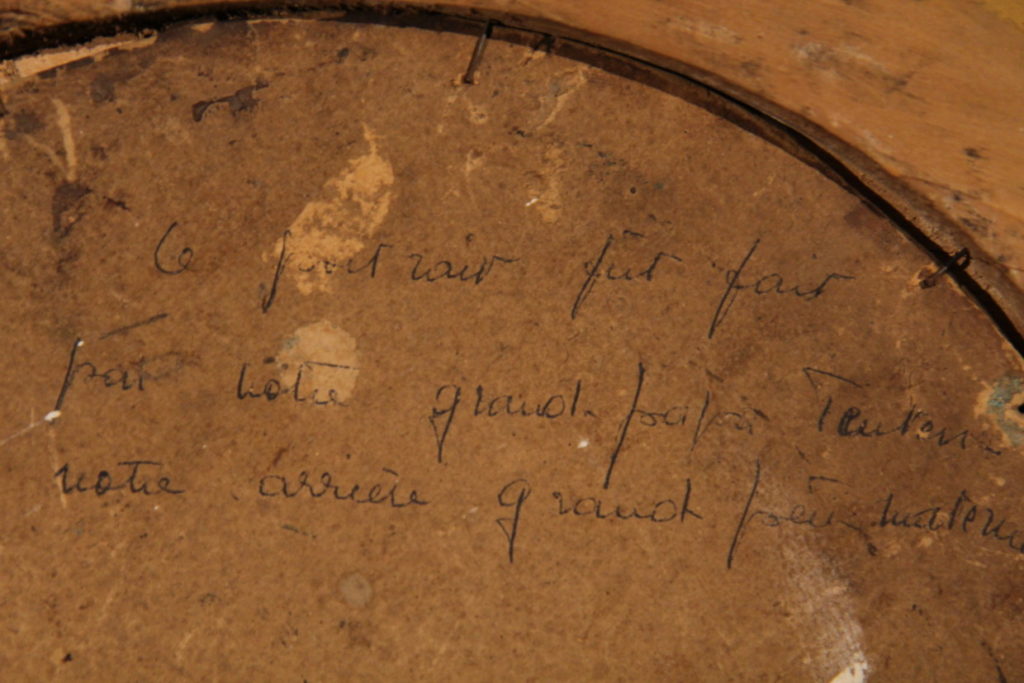 Ce portrait fût fait
par notre grand-papa
notre arrière grand père maternel